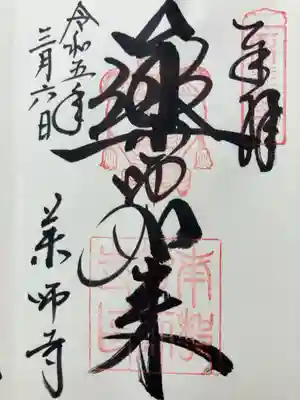 奉拝
薬師如来
令和五年
三月六日
薬師寺